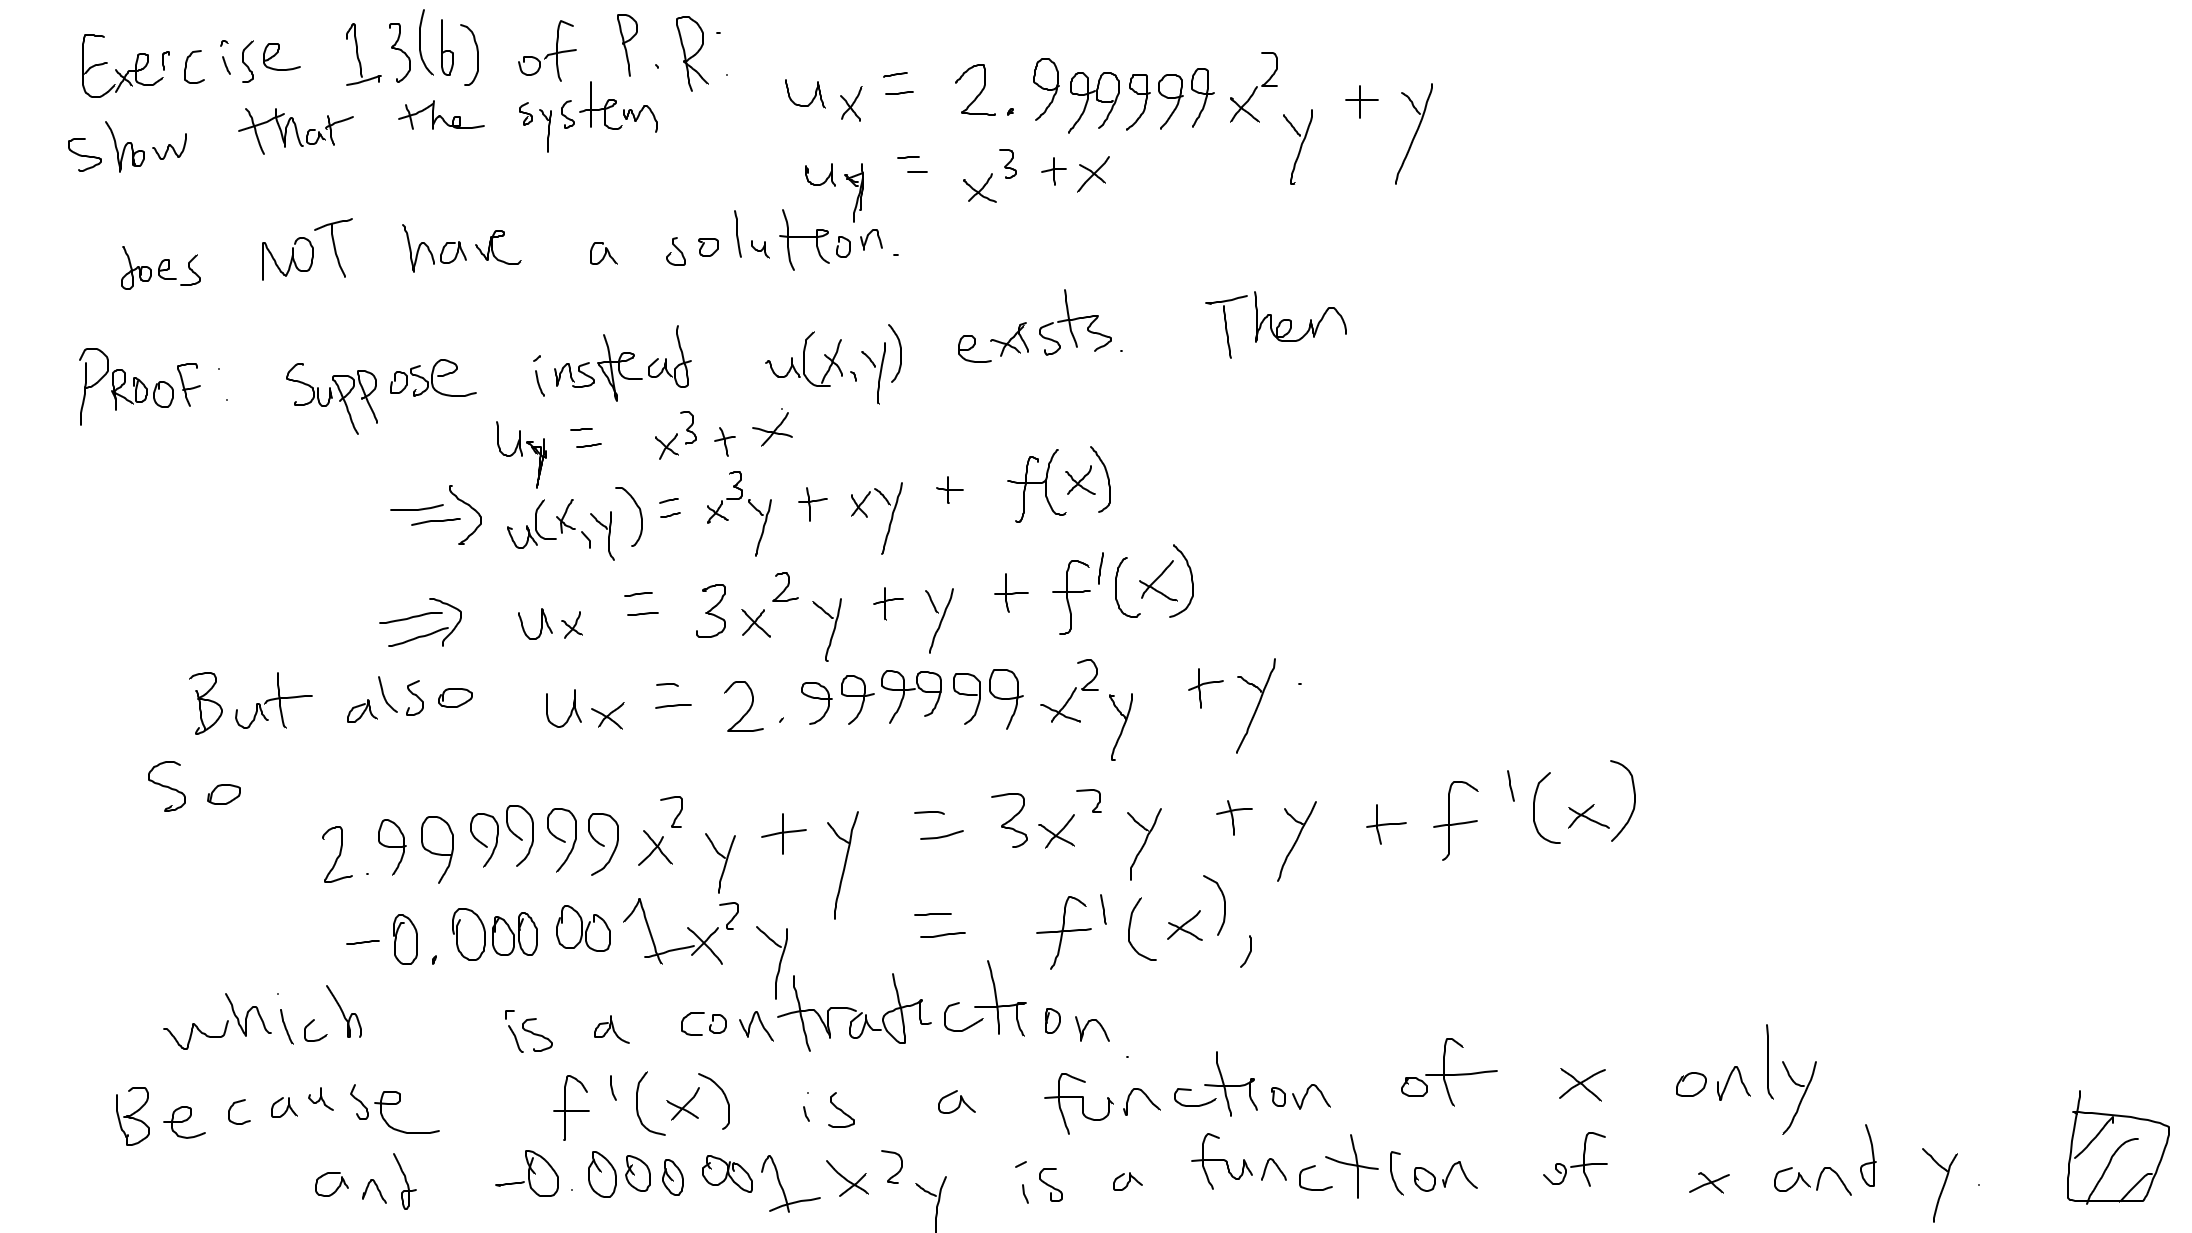 Exercise 13(b) of P.R:
show that the system
u_x = 2.999999x²y + y
u_y = x³ + x
does NOT have a solution.
PROOF: Suppose instead u(x,y) exists. Then
u_y = x³ + x
⟹ u(x,y) = x³y + xy + f(x)
⟹ u_x = 3x²y + y + f'(x)
But also u_x = 2.999999x²y + y.
So
2.999999x²y + y = 3x²y + y + f'(x)
-0.000001x²y = f'(x),
which is a contradiction.
Because f'(x) is a function of x only
and -0.000001x²y is a function of x and y.